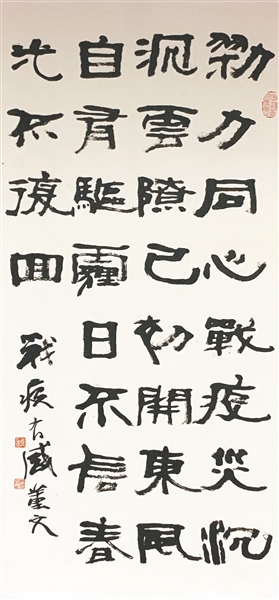 勠力同心戰疫災沉
沉雲隙已初開東風
自有驅霾日不信春
光不復回
戰疫有感董文